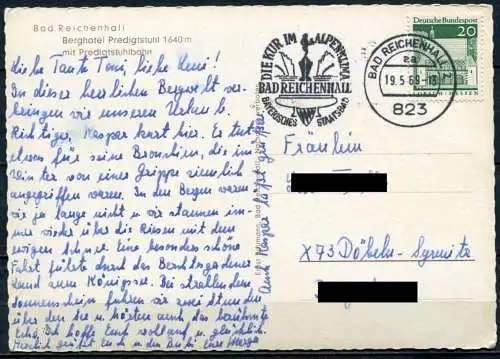 Bad Reichenhall
Berghotel Predigtstuhl 1640 m
mit Predigtstuhlbahn
Liebe Tante Toni, liebe Leni!
In dieser herrlichen Bergwelt ver-
bringen wir unseren Urlaub.
Richtiger, Kaspar kurt hier. Es tut
etwas für seine Bronchien, die im
Winter von einer Grippe ziemlich
angegriffen waren. In den Bergen waren
wir ja lange nicht u. wir staunen im-
mer wieder über die Riesen mit dem
ewigen Schnee. Eine besonders schöne
Fahrt führte durch das Berchtesgadener
Land zum Königssee. Bei strahlendem
Sonnenschein fuhren wir zwei Stunden
über den See u. hörten auch das berühmte
Echo. Ich hoffe Euch wohlauf u. glücklich.
Herzlich grüßt Euch in den Eure
Auch Kaspar läßt grüßen.
Bad Reichenhall
DIE KUR IM ALPENKLIMA
BAD REICHENHALL
BAYERISCHES STAATSBAD
BAD REICHENHALL
za
19.5.69-18
823
Deutsche Bundespost
20
Fräulein
X 73 Döbeln-